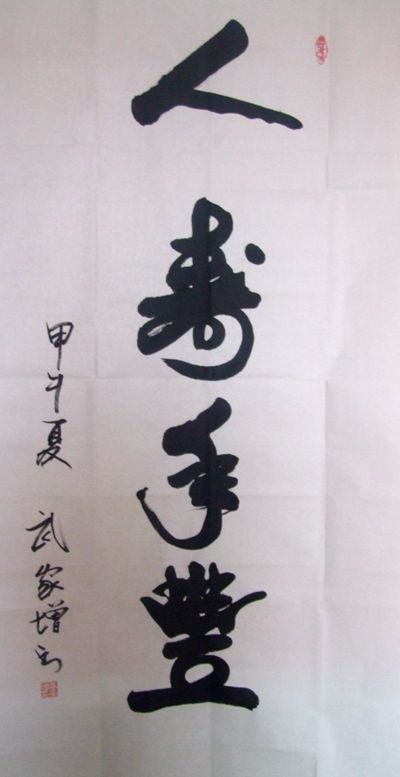 人壽年豐
甲午夏 武家增書